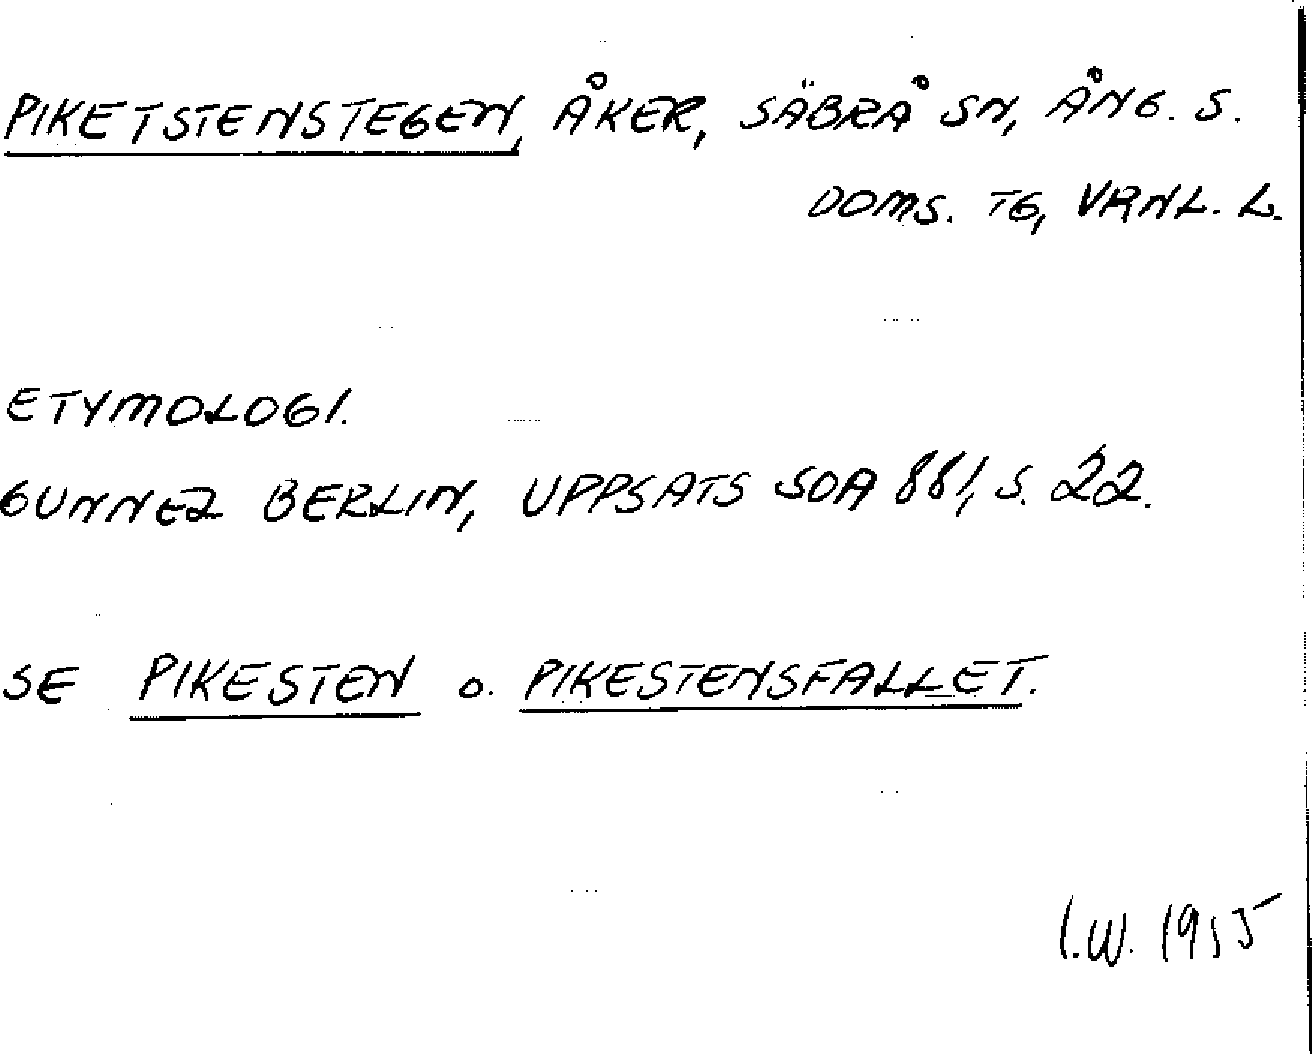 PIKETSTENSTEGEN, ÅKER, SÄBRÅ SN, ÅNG. S.
DOMS. TG, VRNL. L.
ETYMOLOGI.
GUNNEL BERLIN, UPPSATS SOA 881, S. 22.
SE PIKESTEN O. PIKESTENSFALLET.
I.W. 1955